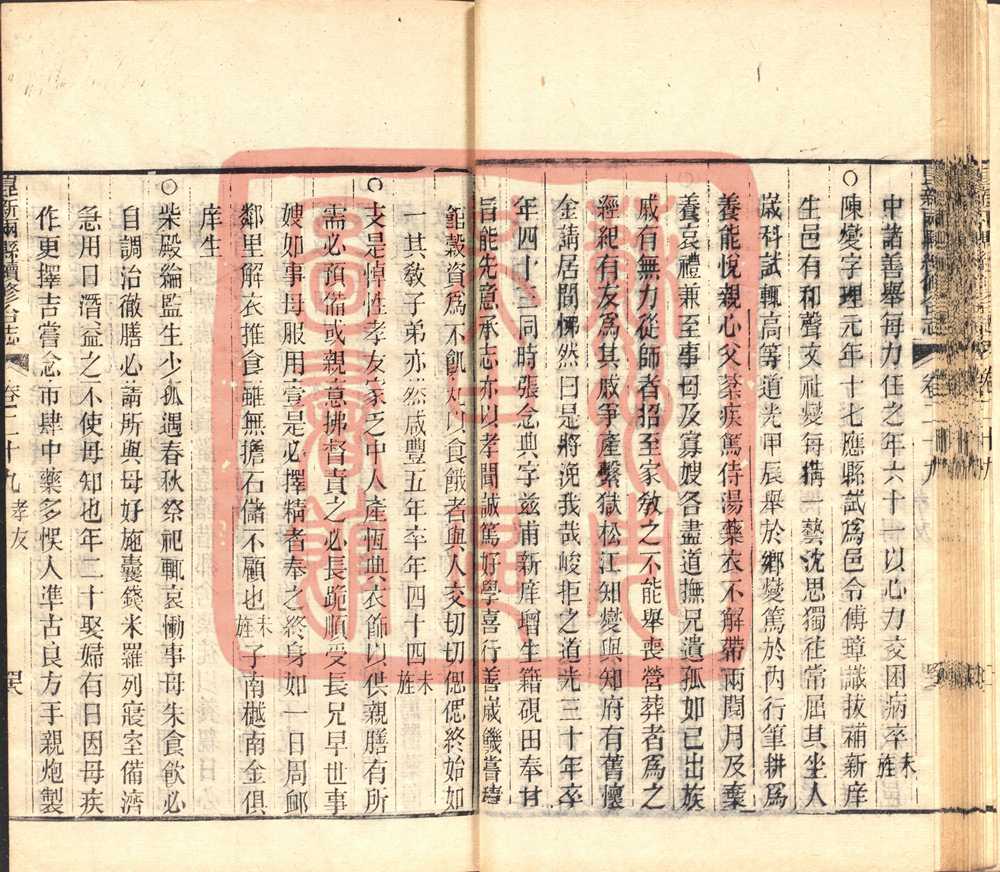 中諸善舉每力任之年六十一以心力交困病卒未旌
○陳變字理元年十七應縣試為邑令傅璋識拔補新庠
生邑有和聲文社變每構一藝沈思獨往常屈其坐人
歲科試輒高等道光甲辰舉於鄉變篤於內行筆耕為
養能悅親心父棻疾篤侍湯藥衣不解帶兩閱月及棄
養哀禮兼至事母及寡嫂各盡道撫兄遺孤如己出族
戚有無力從師者招至家教之不能舉喪營葬者為之
經紀有友為其戚爭產繫獄松江知變與知府有舊懷
金請居間怫然曰是將浼我哉峻拒之道光三十年卒
年四十三同時張念典字茲甫新庠增生籍硯田奉甘
旨能先意承志亦以孝聞誠篤好學喜行善歲饑嘗
穀資為不飢丸以食餓者與人交切切偲偲終始如
一其教子弟亦然咸豐五年卒年四十四未旌
○支是悼性孝友家乏中人產恆典衣飾以供親膳有所
需必預備或親意拂督責之必長跪順受長兄早世事
嫂如事母服用壹是必擇精者奉之終身如一日周鄰
鄰里解衣推食雖無擔石儲不顧也未旌子南樾南金俱
庠生
○柴殿綸監生少孤遇春秋祭祀輒哀慟事母朱食飲必
自調治徹膳必請所與母好施囊錢米羅列寢室備濟
急用日潛益之不使母知也年二十娶婦有日因母疾
作更擇吉嘗念市肆中藥多悞人準古良方手親炮製
崑新兩縣續修合志
卷二十九 孝友